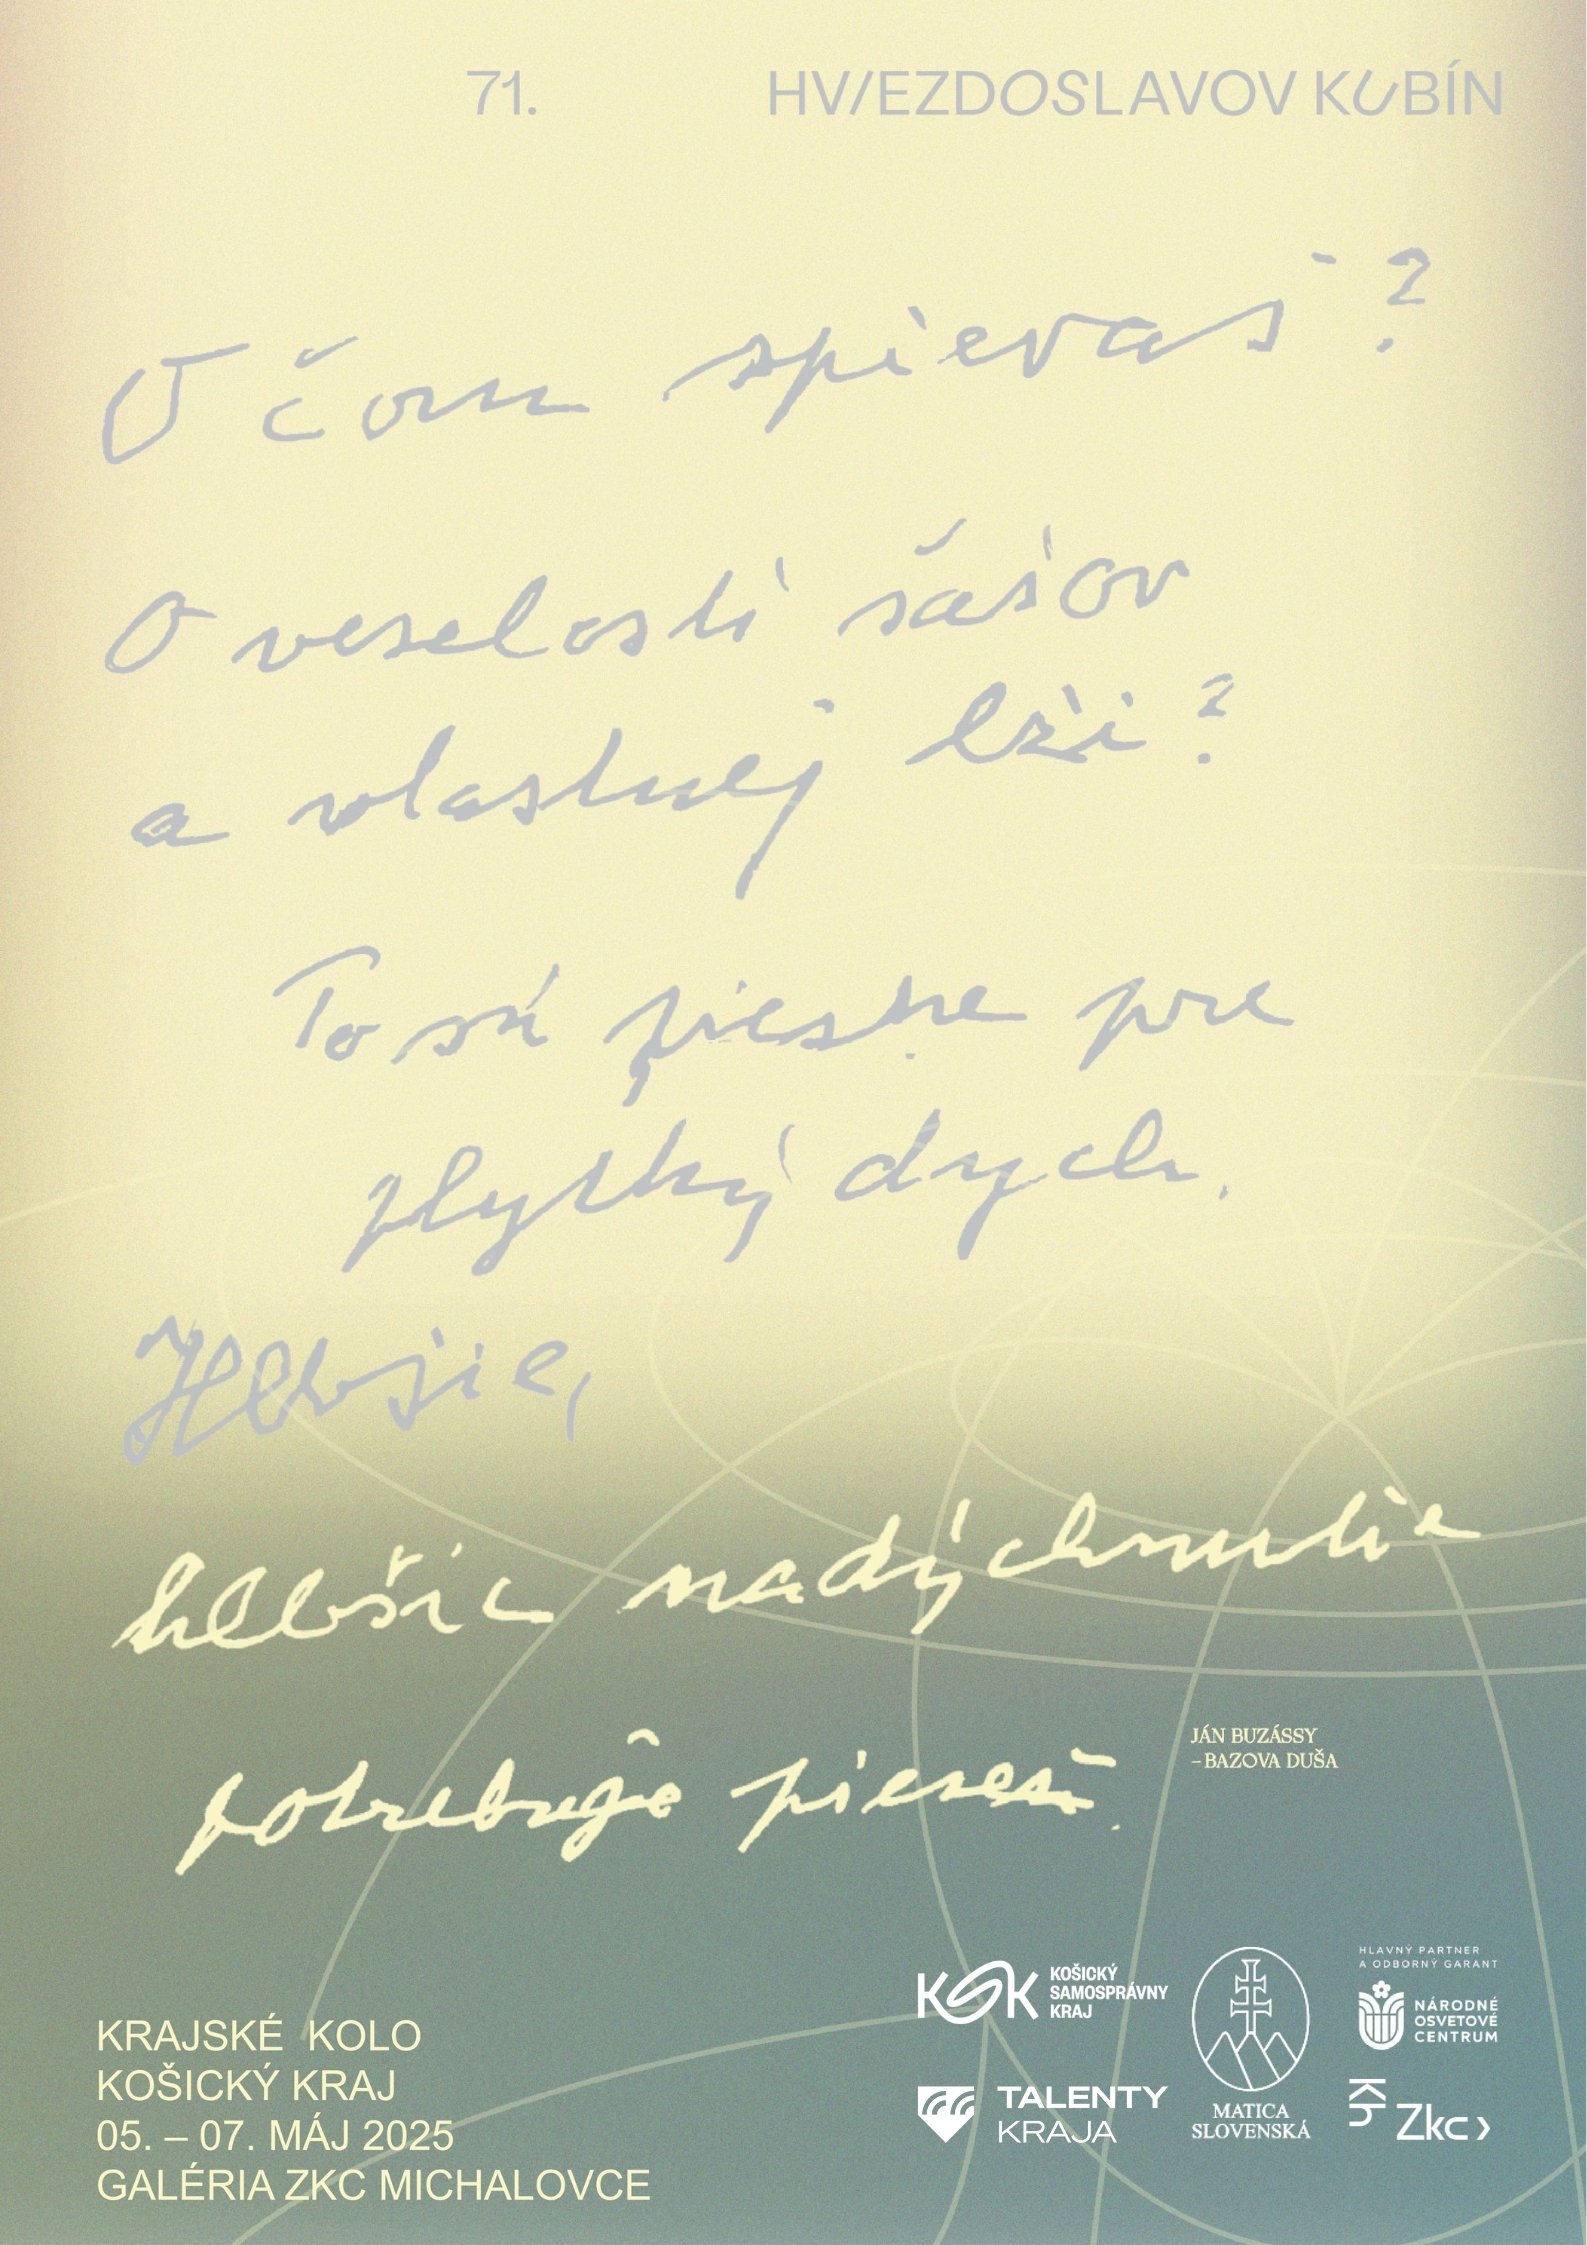 71. HVIEZDOSLAVOV KUBÍN
O čom spievaš?
O veselosti šašov
a vlastnej lži?
To sú piesne pre
plytký dych.
Hlbšie,
hlbšie nadýchnutie
potrebuje pieseň.
JÁN BUZÁSSY
– BAZOVA DUŠA
KRAJSKÉ KOLO
KOŠICKÝ KRAJ
05. – 07. MÁJ 2025
GALÉRIA ZKC MICHALOVCE
KSK KOŠICKÝ
SAMOSPRÁVNY
KRAJ
TALENTY
KRAJA
MATICA
SLOVENSKÁ
HLAVNÝ PARTNER
A ODBORNÝ GARANT
NÁRODNÉ
OSVETOVÉ
CENTRUM
HK
Zkc›